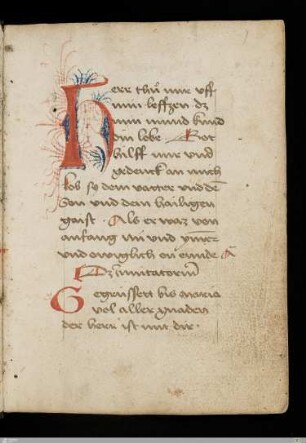 Herr thuͦ mir uff
min leffzen dz
min mund kind
din lobe Got
hilff mir und
gedenck an mich
lob sy dem vatter und dē
son und dem hailigen
gaist · Als er waz von
anfang ni und ymer
und ewiglich on ennde
Dz invitatoriū
Gegrüssett bis maria
vol aller gnaden
der herr ist mit dir ·